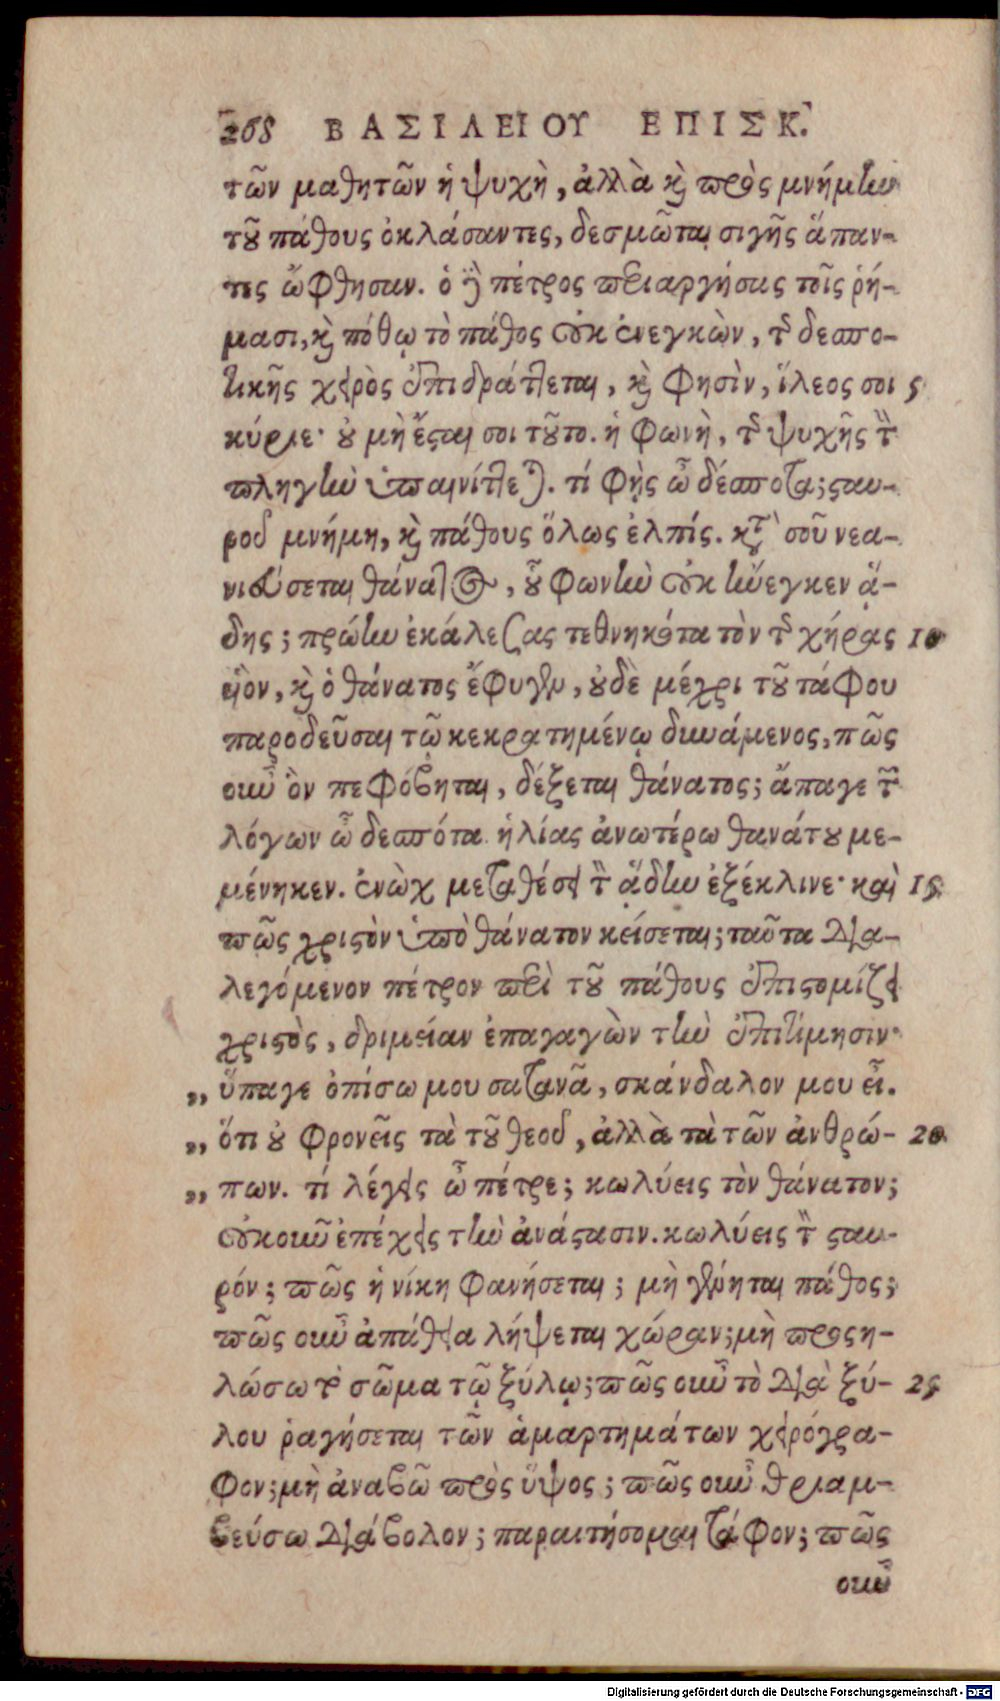 268 ΒΑΣΙΛΕΙΟΥ ΕΠΙΣΚ.
τῶν μαθητῶν ἡ ψυχὴ, ἀλλὰ καὶ πρὸς μνήμην
τοῦ πάθους ὀκλάσαντες, δεσμῶται σιγῆς ἅπαν-
τες ὤφθησαν. ὁ δὲ πέτρος περιαργήσας τοῖς ῥή-
μασι, καὶ πόθῳ τὸ πάθος οὐκ ἐνεγκὼν, τῆς δεσπο-
τικῆς χειρὸς ἐπιδράττεται, καὶ φησὶν, ἵλεος σοι 5
κύριε· οὐ μὴ ἔσται σοι τοῦτο. ἡ φωνὴ, τῆς ψυχῆς τὴν
πληγὴν ὑπαινίττεται. τί φὴς ὦ δέσποτα; σταυ-
ροῦ μνήμη, καὶ πάθους ὅλως ἐλπίς. κατὰ σοῦ νεα-
νιεύσεται θάνατος, οὗ φωνὴν οὐκ ἤνεγκεν ᾅ-
δης; πρώην ἐκάλεσας τεθνηκότα τὸν τῆς χήρας 10
υἱὸν, καὶ ὁ θάνατος ἔφυγεν, οὐδὲ μέχρι τοῦ τάφου
παροδεῦσαι τῷ κεκρατημένῳ δυνάμενος, πῶς
οὖν ὃν πεφόβηται, δέξεται θάνατος; ἄπαγε τῶν
λόγων ὦ δεσπότα. ἠλίας ἀνωτέρω θανάτου με-
μένηκεν. ἐνὼχ μεταθέσει τὸν ᾅδην ἐξέκλινε· καὶ 15
πῶς χριστὸν ὑπὸ θάνατον κείσεται; ταῦτα δια-
λεγόμενον πέτρον περὶ τοῦ πάθους ἐπιστομίζει
χριστὸς, δριμεῖαν ἐπαγαγὼν τὴν ἐπιτίμησιν·
,, ὕπαγε ὀπίσω μου σατανᾶ, σκάνδαλον μου εἶ.
,, ὅτι οὐ φρονεῖς τὰ τοῦ θεοῦ, ἀλλὰ τὰ τῶν ἀνθρώ- 20
,, πων. τί λέγεις ὦ πέτρε; κωλύεις τὸν θάνατον;
οὐκοῦν ἐπέχεις τὴν ἀνάστασιν. κωλύεις τὸν σταυ-
ρόν; πῶς ἡ νίκη φανήσεται; μὴ γένηται πάθος;
πῶς οὖν ἀπάθεια λήψεται χώραν; μὴ προση-
λώσω τὸ σῶμα τῷ ξύλῳ; πῶς οὖν τὸ διὰ ξύ- 25
λου ῥαγήσεται τῶν ἁμαρτημάτων χειρόγρα-
φον; μὴ ἀναβῶ πρὸς ὕψος; πῶς οὖν θριαμ-
βεύσω διάβολον; παραιτήσομαι τάφον; πῶς
οὖν
Digitalisierung gefördert durch die Deutsche Forschungsgemeinschaft - DFG